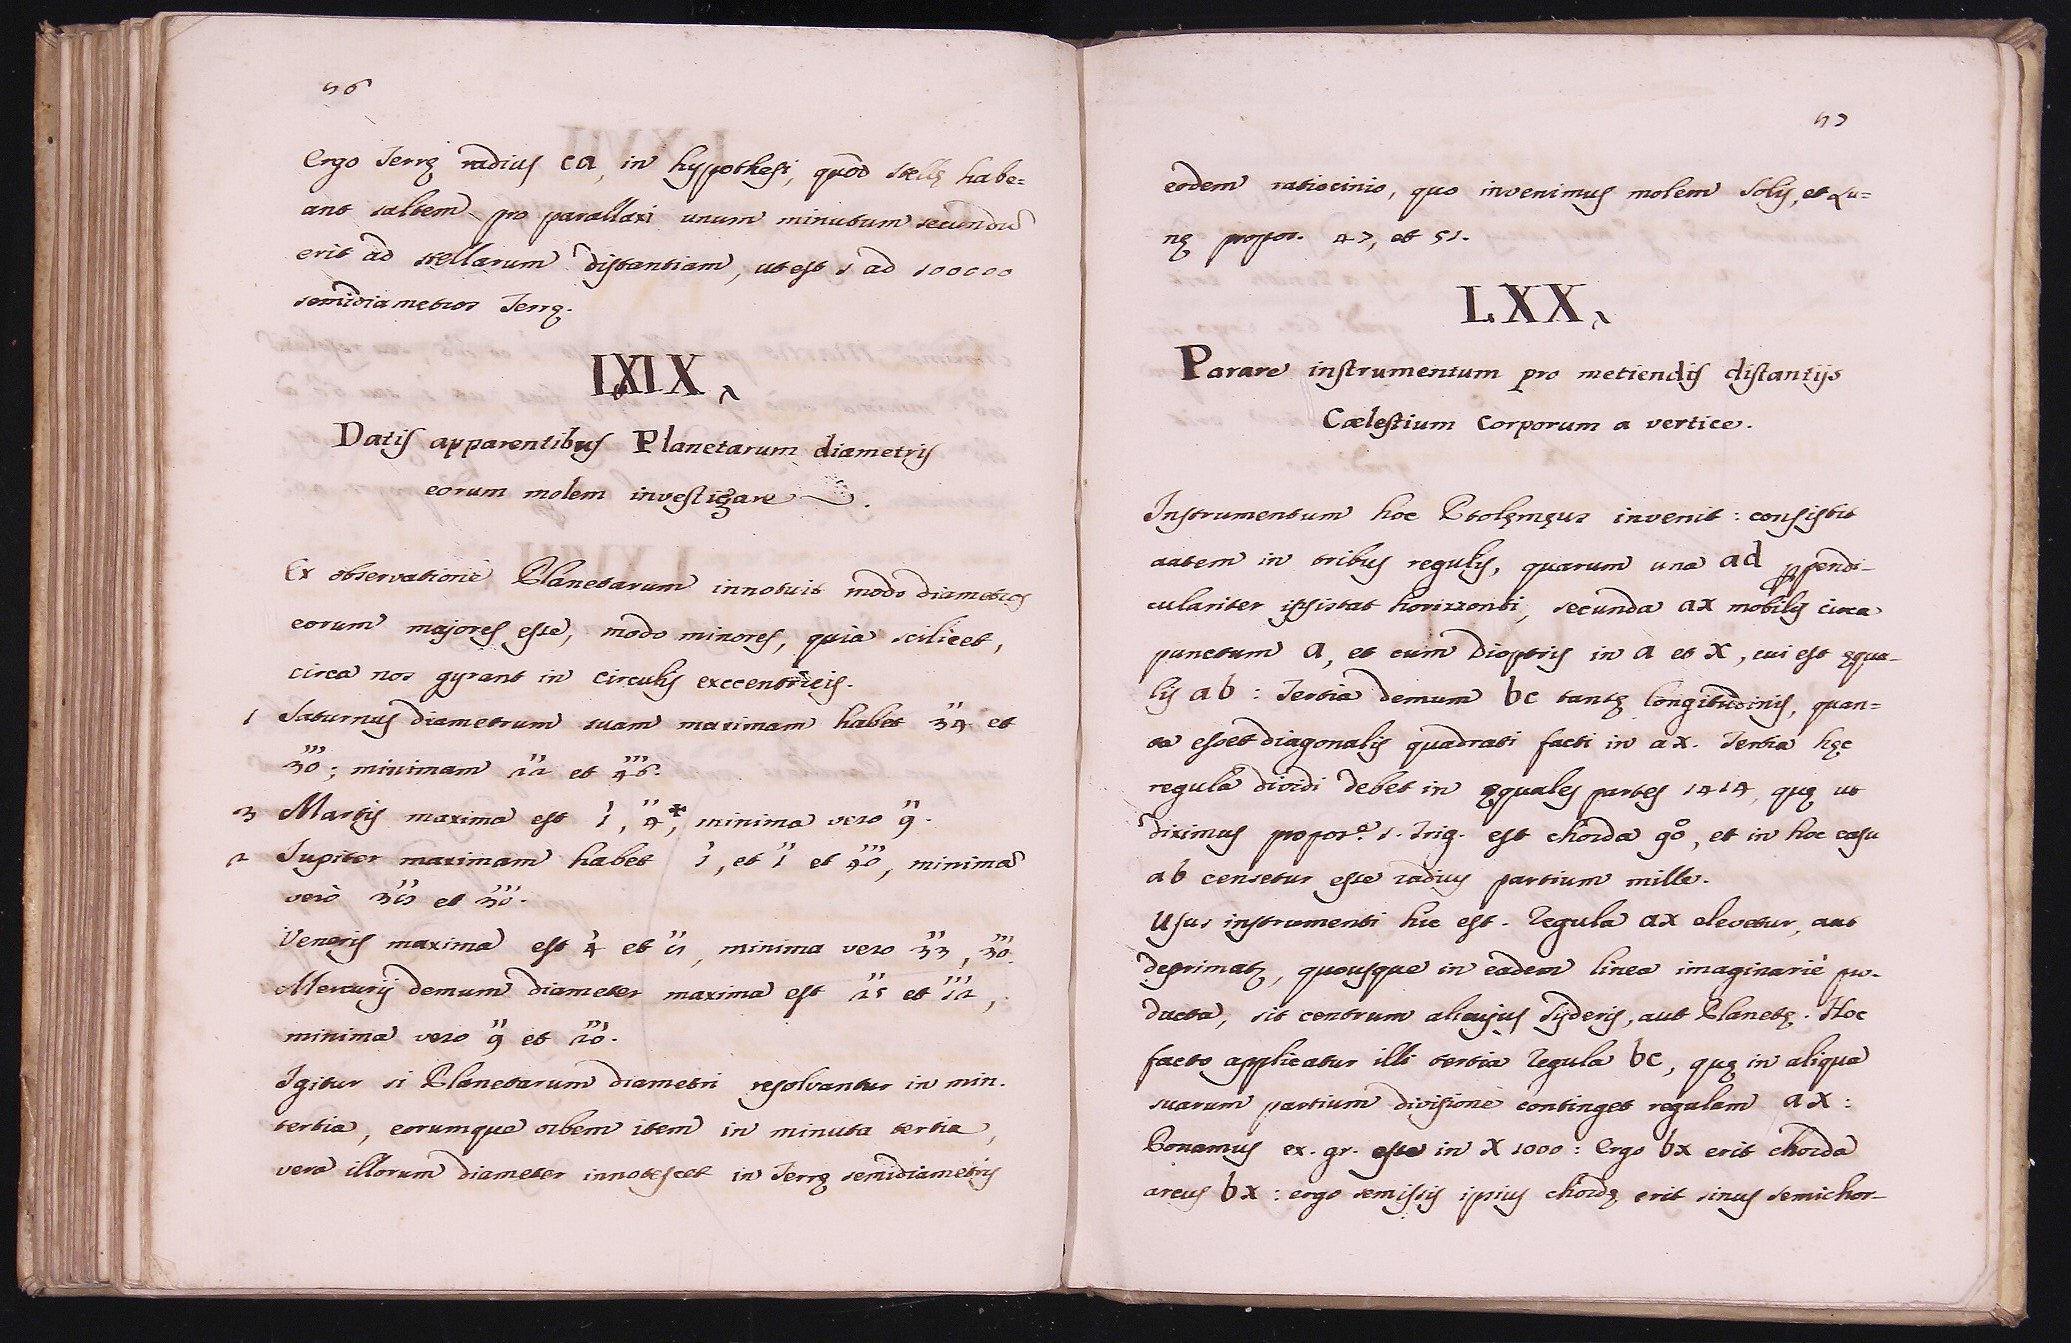 56
Ergo Terrę radius ca, in hypothesi, quod stellę habe=
ant saltem pro parallaxi unum minutum secundũ
erit ad stellarum distantiam, ut est 1 ad 100000
semidiametros Terrę.
LXIX
Datis apparentibus Planetarum diametris
eorum molem investigare
Ex observatione Planetarum innotuit modo diametros
eorum majores esse, modo minores, quia scilicet,
circa nos gyrant in circulis exccentricis.
1 Saturnus diametrum suam maximam habet 34'' et
30'''; minimam 22'' et 46'''.
3 Martis maxima est 1', 4''*, minima vero 9''.
2 Jupiter maximam habet 1', et 1'' et 40''', minima
verò 36'' et 30'''.
Veneris maxima est 4' et 6'', minima vero 33'', 30'''.
Mercurij demum diameter maxima est 25'' et 12''',
minima vero 9'' et 20'''.
Igitur si Planetarum diametri resolvantur in min.
tertia, eorumque orbem item in minuta tertia,
vera illorum diameter innotescet in Terrę semidiametris
57
eodem ratiocinio, quo invenimus molem Solis, et Lu=
nę propos. 47, et 51.
LXX
Parare instrumentum pro metiendis distantijs
Cælestium corporum a vertice.
Instrumentum hoc Ptolęmęus invenit: consistit
autem in tribus regulis, quarum una ad ꝑpendi-
culariter insistat horizzonti, secunda ax mobilis circa
punctum a, et cum dioptris in a et x, cui est ęqua-
lis ab: Tertia demum bc tantę longitudinis, quan=
ta esset diagonalis quadrati facti in ax. Tertia hęc
regula dividi debet in ęquales partes 1414, quę ut
diximus propos.e 1. Trig. est chorda 90, et in hoc casu
ab censetur esse radius partium mille.
Usus instrumenti hic est. Regula ax elevetur, aut
deprimatꝛ, quousque in eadem linea imaginariè pro-
ducta, sit centrum alicujus Syderis, aut Planetę. Hoc
facto applicatur illi tertia Regula bc, quę in aliqua
suarum partium divisione continget regulam ax:
Ponamus ex. gr. esse in x 1000: Ergo bx erit chorda
arcus bx: ergo semissis ipsius chordę erit sinus semichor-